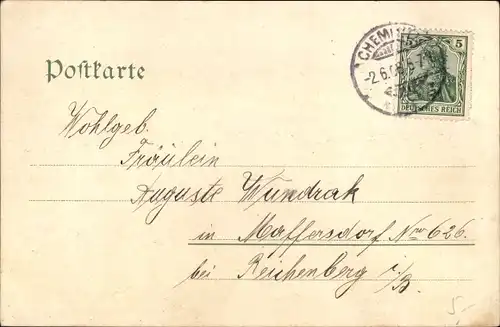 Postkarte
CHEMNI
-2.6.0
5 5
DEUTSCHES REICH
Wohlgeb.
Fräulein
Auguste Wundrak
in Maffersdorf No 626.
bei Reichenberg i/B.
5,-